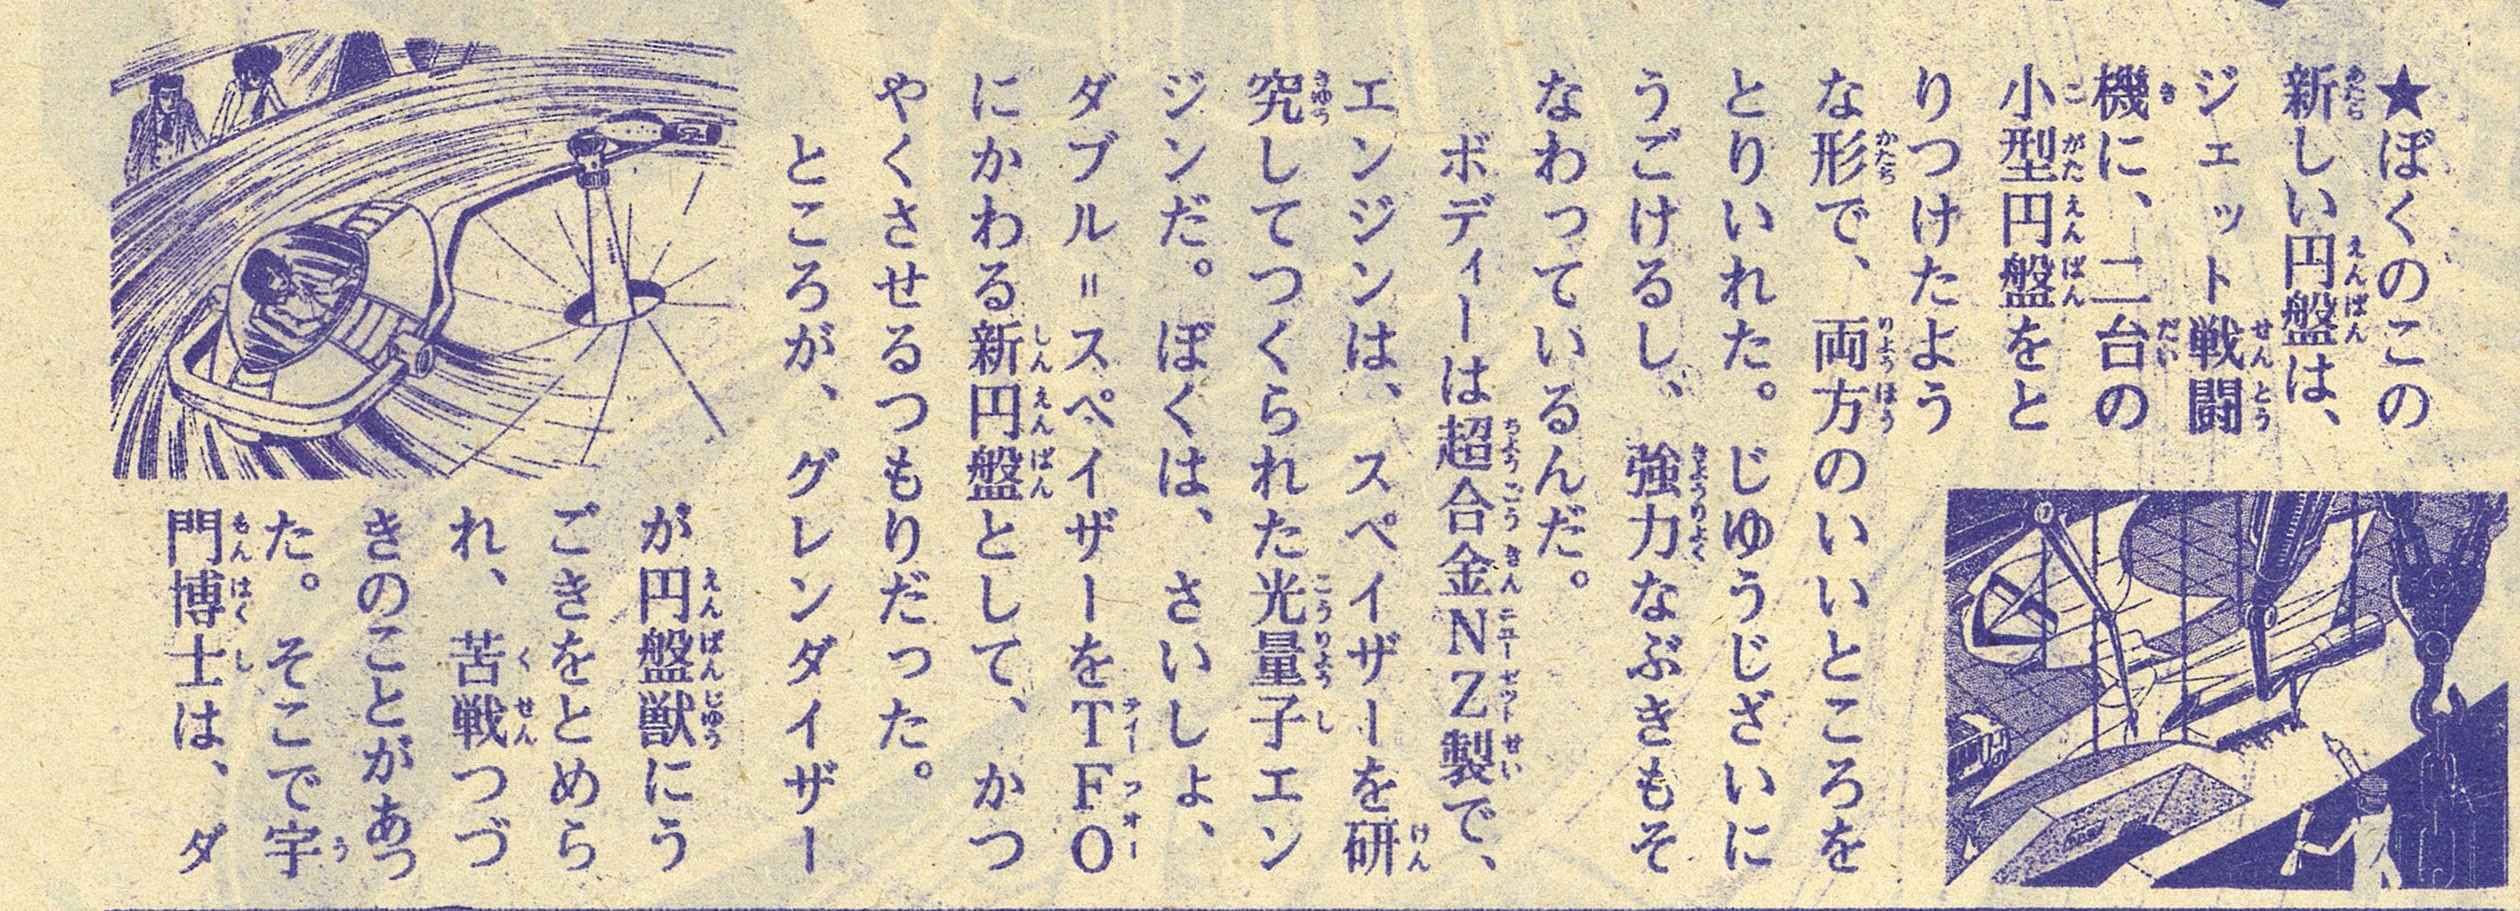 ★ぼくのこの
新しい円盤は、
ジェット戦闘
機に、二台の
小型円盤をと
りつけたよう
な形で、両方のいいところを
とりいれた。じゆうじざいに
うごけるし、強力なぶきもそ
なわっているんだ。
ボディーは超合金NZ製で、
エンジンは、スペイザーを研
究してつくられた光量子エン
ジンだ。ぼくは、さいしょ、
ダブル=スペイザーをTFO
にかわる新円盤として、かつ
やくさせるつもりだった。
ところが、グレンダイザー
が円盤獣にう
ごきをとめら
れ、苦戦つづ
きのことがあっ
た。そこで宇
門博士は、ダ